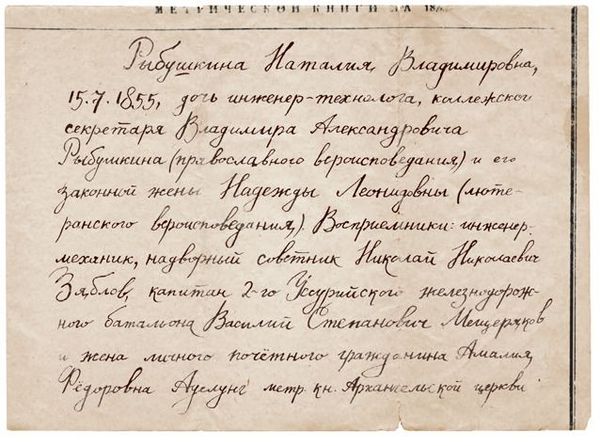 МЕТРИЧЕСКОЙ КНИГИ ЗА 18
Рыбушкина Наталия, Владимировна,
15.7.1855, дочь инженер-технолога, коллежског
секретаря Владимира Александровича
Рыбушкина (православного вероисповедания) и его
законной жены Надежды Леонидовны (люте-
ранского вероисповедания,). Восприемники: инженер-
механик, надворный советник Николай Николаевич
Зяблов, капитан 2-го Уссурийского железнодорож-
ного батальона Василий Степанович Мещеряков
и жена личного почётного гражданина Амалия
Фёдоровна Ауслунг метр. кн. Архангельской церкви